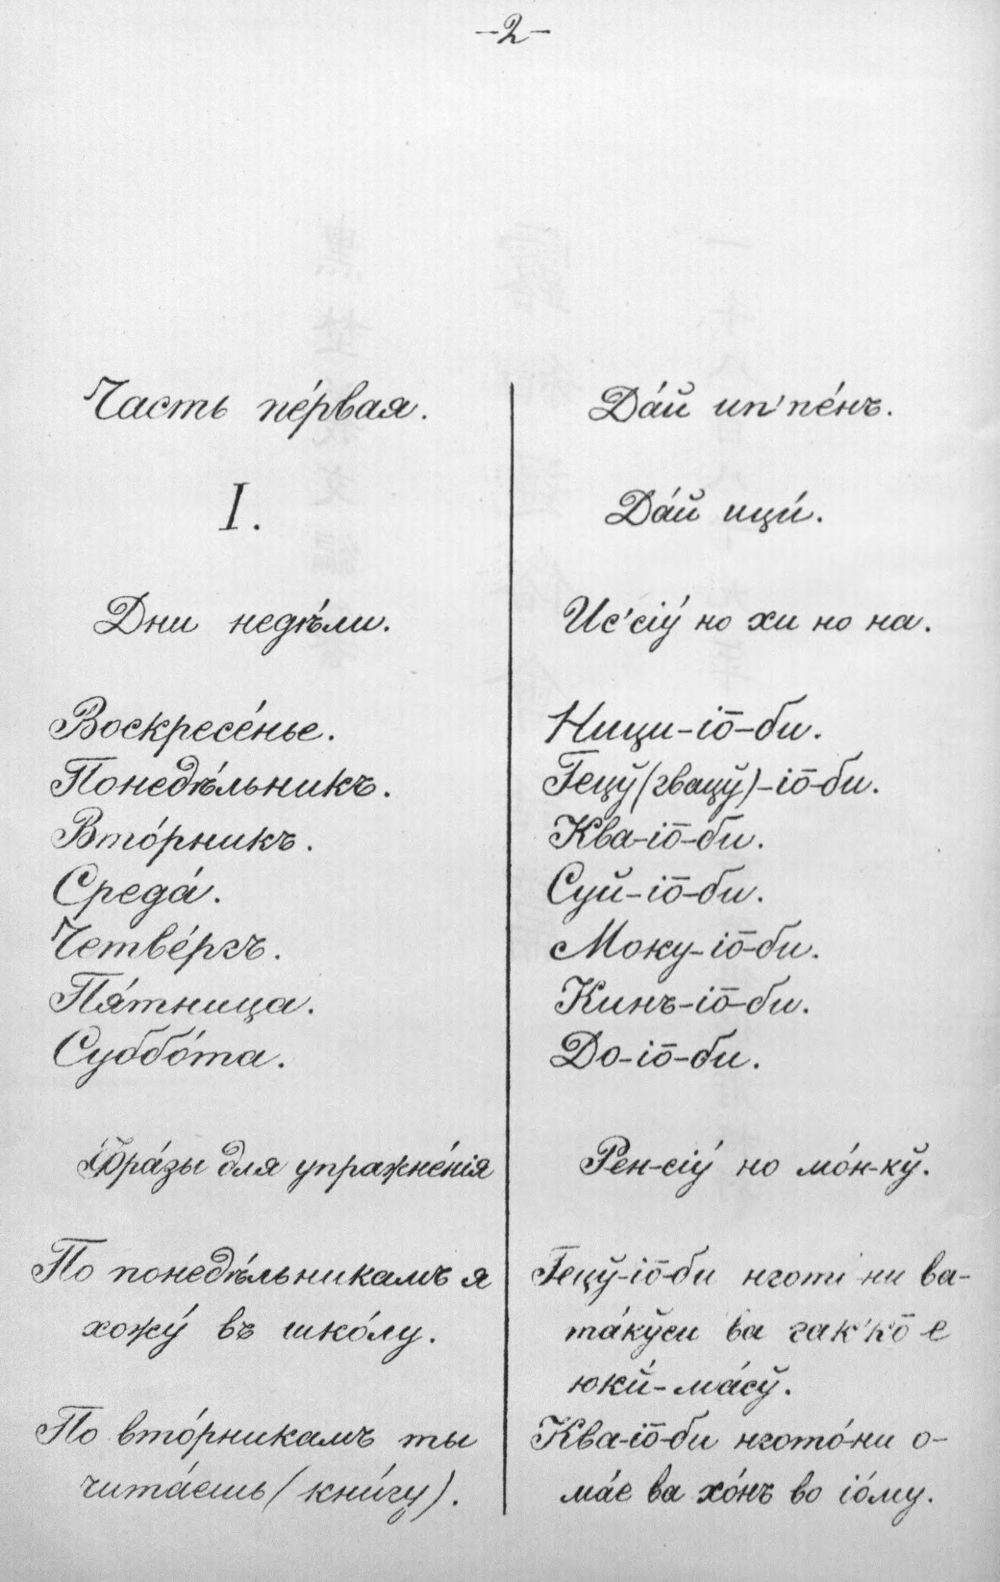 –2–
Часть пе́рвая.
I.
Дни недѣ́ли.
Воскресе́нье.
Понедѣ́льникъ.
Вто́рникъ.
Среда́.
Четве́ргъ.
Пя́тница.
Суббо́та.
Фра́зы для упражне́нія
По понедѣ́льникамъ я
хожу́ въ шко́лу.
По вто́рникамъ ты
чита́ешь (кни́гу).
Да́й ип'пе́нъ.
Да́й ици́.
Ис'сіу́ но хи но на.
Ници-іо̄-би.
Гецў(гвацў)-іо̄-би.
Ква-іо̄-би.
Суй-іо̄-би.
Моку-іо̄-би.
Кинъ-іо̄-би.
До-іо̄-би.
Рен-сіу́ но мо́н-кў.
Гецў-іо̄-би нготі ни ва-
та́кўси ва гак'ко̄ е
юки́-ма́сў.
Ква-іо̄-би нгото́-ни о-
ма́е ва хо́нъ во іо́му.